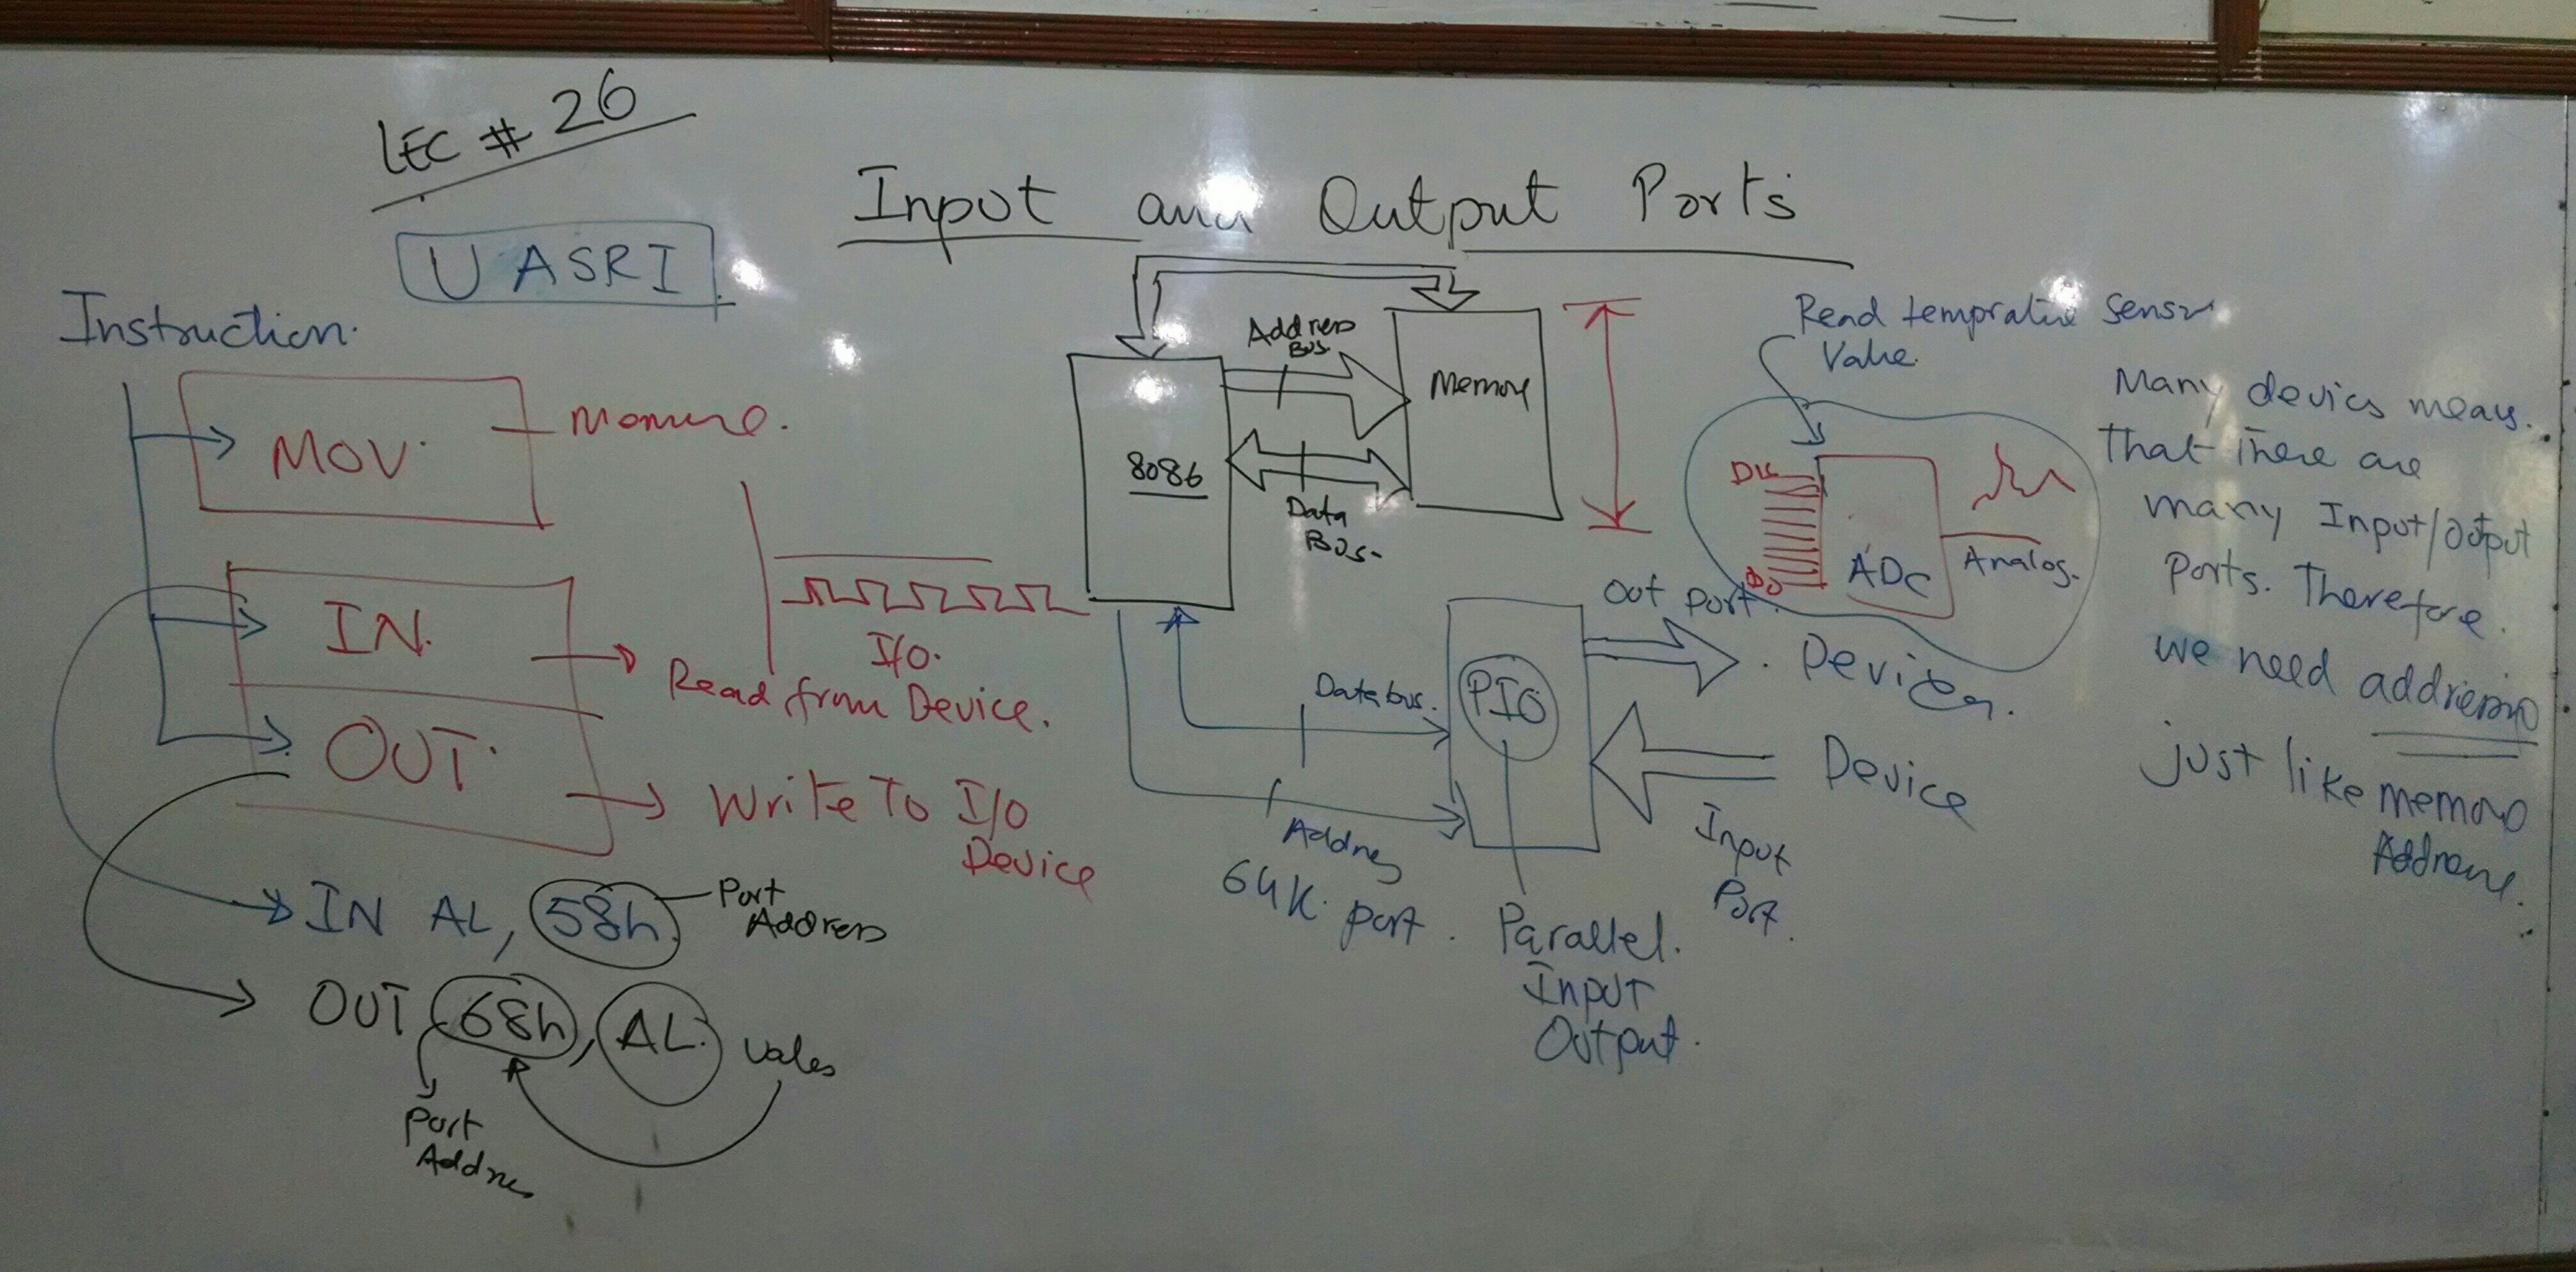 LEC # 26
U ASRI
Input and Output Ports
Instruction.
MOV.
IN.
Read from Device.
OUT.
Write To I/O
Device
I/O.
IN AL, 58h
Port
Address
OUT 68h, AL.
Port
Addres
Address
Bus.
8086
Data
Bus-
Data bus.
Addres
64K. port.
PIO
Parallel.
Input
Output.
Out port.
Device
Input
Port.
Read temprature Sensor
Value
D0
ADC
Analog.
Many devices means.
That There are
many Input/Output
Ports. Therefore.
we need addressing
just like memory
Address.